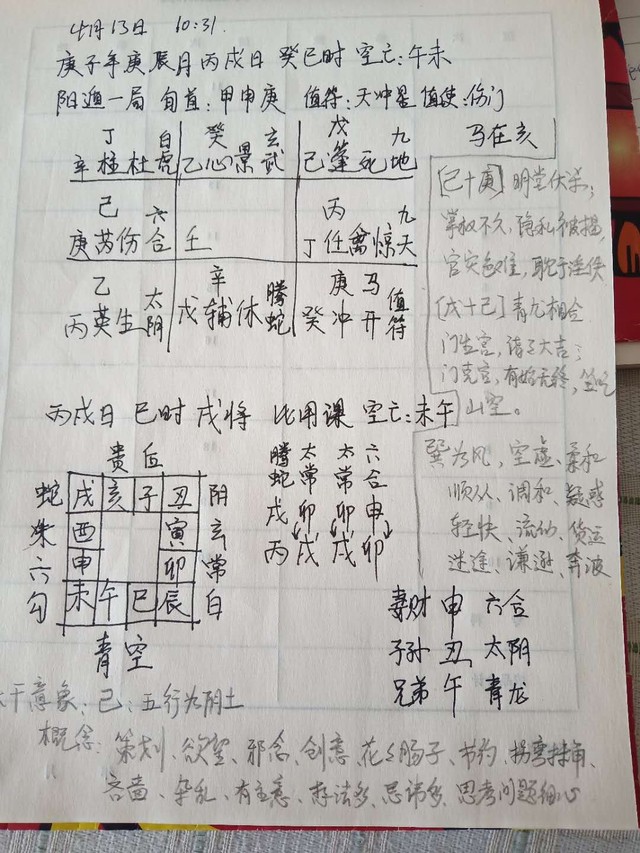 4月13日 10:31.
庚子年庚辰月丙戌日 癸巳时 空亡:午未
阳遁一局 旬首:甲申庚 值符:天冲星 值使:伤门
马在亥
丁 白 癸 玄 戊 九
辛柱杜虎 乙心景武 己蓬死地
己 六 丙 九
庚芮伤合 壬 丁任禽惊天
乙 太 辛 腾 庚 马 值
丙英生阴 戊辅休蛇 癸冲开符
[己+庚] 明堂伏杀;
掌权不久,隐私被揭,
官灾色难,耽于淫佚
[戊+己] 青龙相合
门生宫,诸事大吉;
门克宫,有始无终,坐吃
山空。
丙戌日 巳时 戌将 比用课 空亡:未午
巽为风,空虚、柔和
顺从、调和、疑惑
轻快、流动、货运
迷途、谦逊、奔波
贵 后
蛇 戌 亥 子 丑 阴
朱 酉 寅 玄
六 申 卯 常
勾 未 午 巳 辰 白
青 空
腾 太 太 六
蛇 常 常 合
戌 卯 卯 申
丙 戌 戌 卯
妻财 申 六合
子孙 丑 太阴
兄弟 午 青龙
天干意象:己:五行为阴土
概念:策划、欲望、邪念、创意、花花肠子、书约、拐弯抹角、
吝啬、杂乱、有主意、想法多、忌讳多、思考问题细心